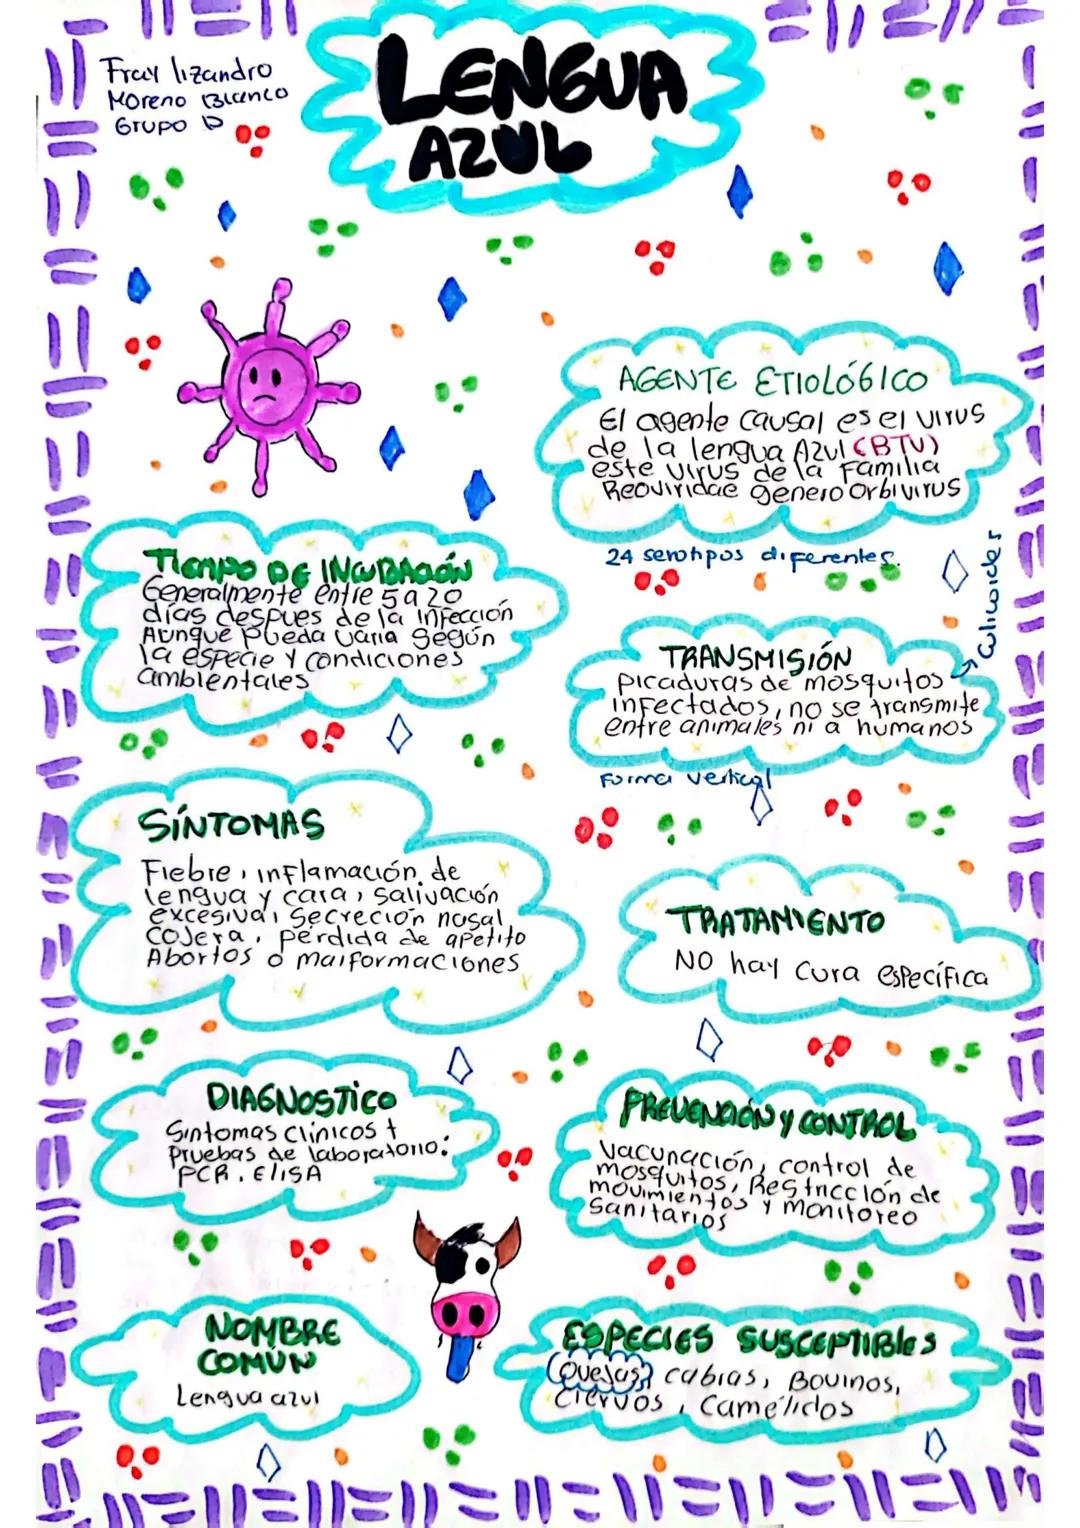 Fray lizandro
Moreno Blanco
Grupo D
LENGUA
AZUL
AGENTE ETIOLÓGICO
El agente causal es el virus
de la lengua Azul (BTV)
este virus de la Familia
Reoviridae genero Orbivirus
24 serotipos diferentes.
TIEMPO DE INCUBACIÓN
Generalmente entre 5 a 20
días despues de la infección
Aunque pueda varia según
la especie y condiciones
ambientales
Culicoides
TRANSMISIÓN
picaduras de mosquitos
infectados, no se transmite
entre animales ni a humanos
Forma vertical
SÍNTOMAS
Fiebre, inflamación de
lengua y cara, salivación
excesiva, secreción nasal
cojera, pérdida de apetito
Abortos o malformaciones
TRATAMIENTO
NO hay cura específica
DIAGNOSTICO
Sintomas clínicos +
Pruebas de laboratorio:
PCR, ELISA
PREVENCIÓN y CONTROL
Vacunación, control de
mosquitos, Restricción de
movimientos y monitoreo
sanitarios
NOMBRE
COMÚN
Lengua azul
ESPECIES SUSCEPTIBLES
Ovejas, cabras, Bovinos,
Ciervos, Camélidos